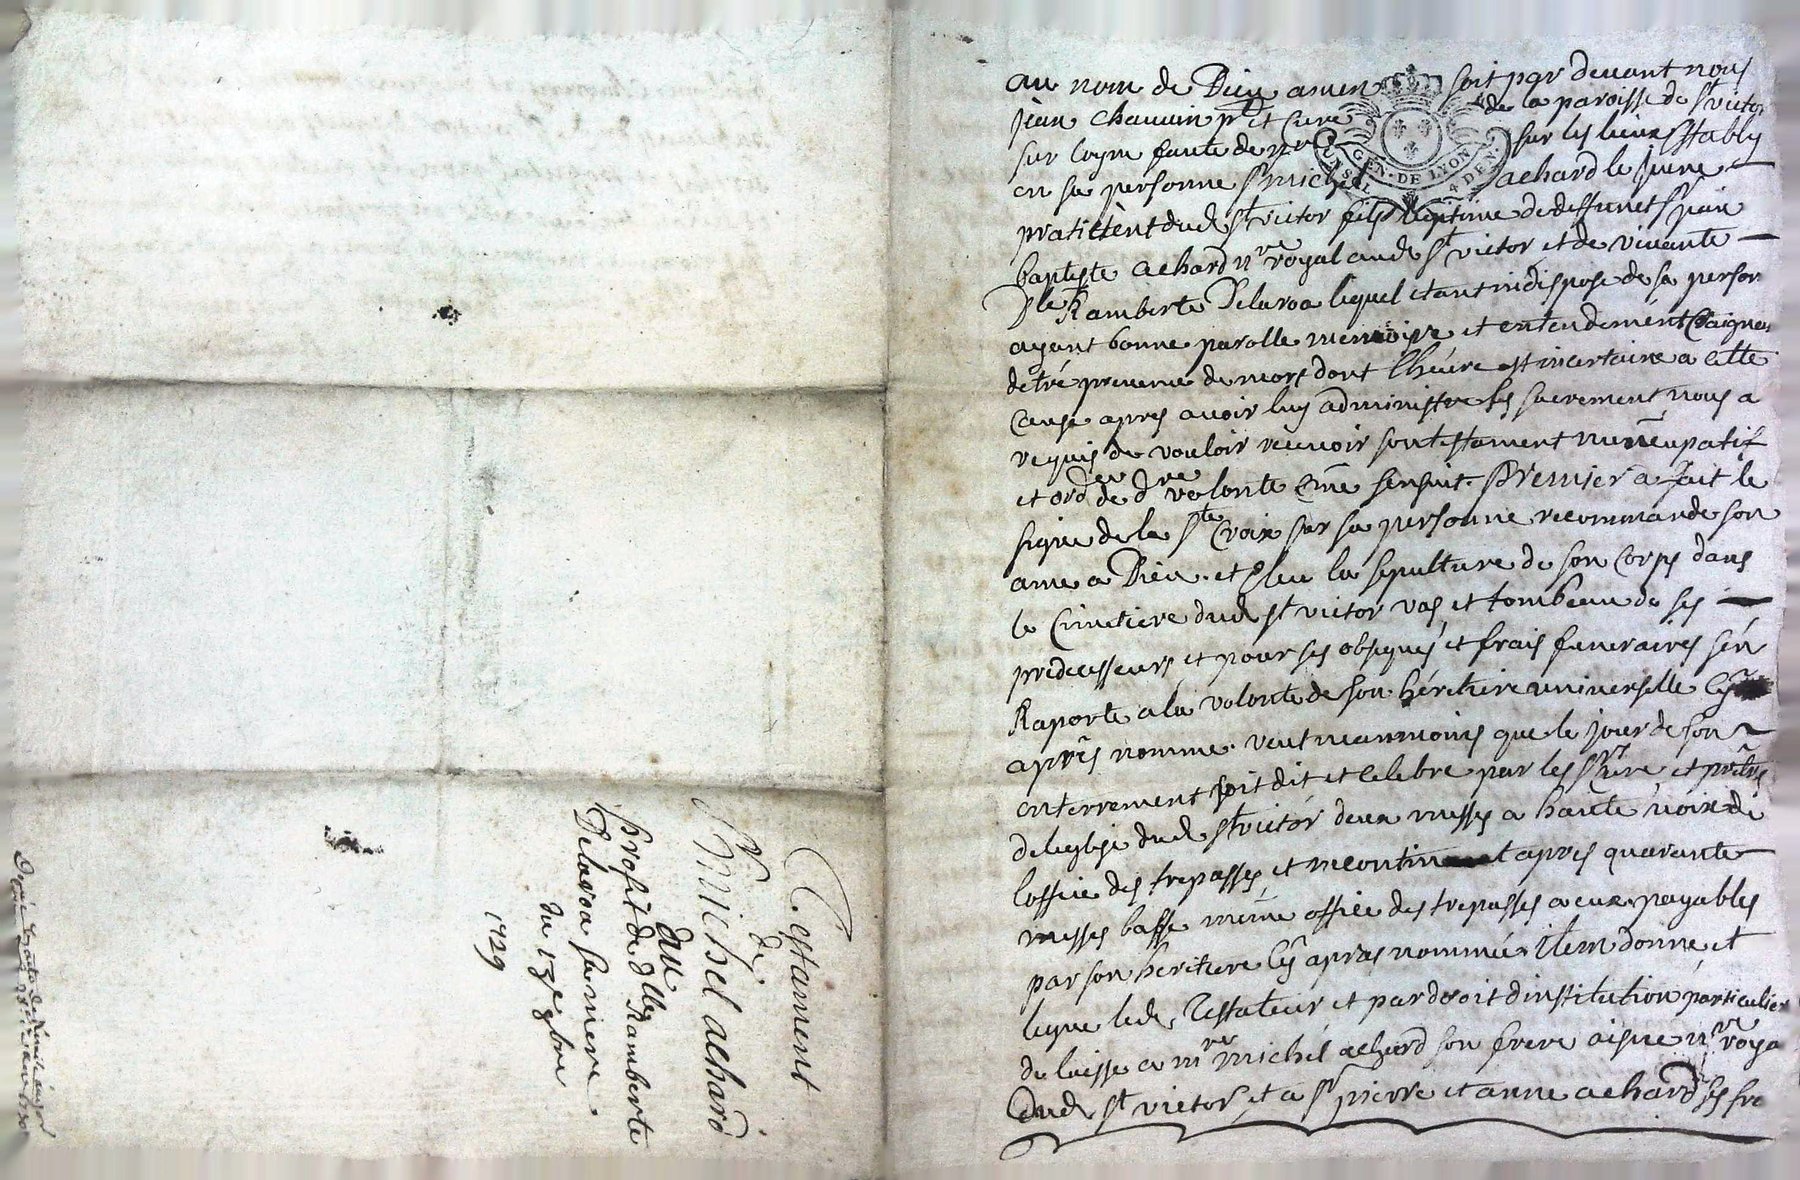 au nom de Dieu amen soit par devant nous
jean chauuin ptre et Curé de la paroisse de st victor
sur loyre faute de nre sur les lieux Estably
en sa personne sr michel achard le jeune
pratitient dud st victor fils legitime de deffunct sr jean
baptiste achard nre royal aud st victor et de viuante
Dlle Ramberte Delaroa lequel etant indisposé de sa person
ayant bonne parolle memoire et entendement Craignant
detre preuenu de mort dont lheure est incertaine a cette
Cause apres auoir luy administre les sacrement nous a
requis de vouloir receuoir son testament nuncupatif
et ord de dre volonte Cme sensuit. Premier a fait le
signe de la Ste Croix sur sa personne recommande son
ame a Dieu. et Eleu la sepulture de son Corps dans
le Cimetiere dud st victor vas et tombeau de ses
predecesseurs et pour ses obseques et frais funeraires sen
Raporte a la volonte de son héritiere universelle Cy
apres nomme. veut neanmoins que le jour de son
enterrement soit dit et celebre par les Srs Curé et prêtres
de leglise dud st victor deux messes a haute voix de
loffice des trepasses et incontinent apres quarante
messes basse meme office des trepasses a eux payables
par son heritiere Cy apres nommée item donne et
legue led Testateur et par droit dinstitution particuliere
delaisse a mre michel achard son frere aisne nre roya
dud st victor, et a sr pierre et anne achard ses fre
Testament
de
Sr michel achard
au
profit de dlle Ramberte
Delaroa sa mere
du 13e 9bre
1729
GEN. DE LYON
4 DEN.